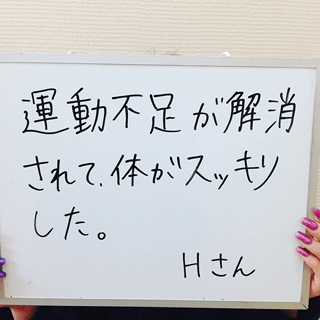 運動不足が解消
されて、体がスッキリ
した。
Hさん